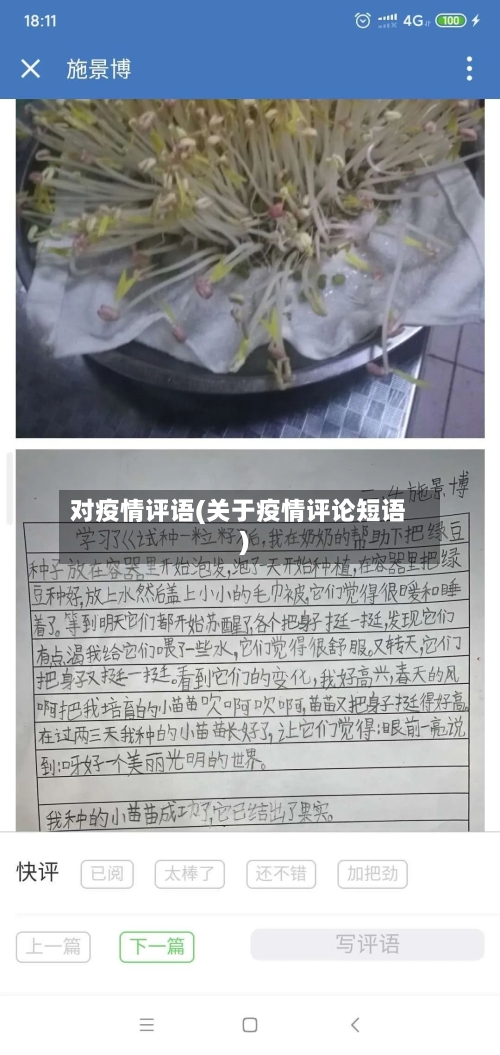 18:11
4G
100
施景博
施景博
对疫情评语(关于疫情评论短语
)
学习了《试种一粒籽》后,我在奶奶的帮助下把绿豆
种子放在容器里开始泡发,泡了一天开始种植,在容器里把绿
豆种好,放上水然后盖上小小的毛巾被,它们觉得很暖和睡
着了。等到明天它们都开始苏醒了,各个把身子挺一挺,发现它们
有点渴我给它们喂了一些水,它们觉得很舒服。又转天,它们
把身子又挺一挺。看到它们的变化,我好高兴,春天的风
啊把我培育的小苗苗吹啊吹啊,苗苗又把身子挺得好高。
在过两三天我种的小苗苗长好了,让它们觉得:眼前一亮说
到:呀好一个美丽光明的世界。
我种的小苗苗成功了,它已结出了果实。
快评
已阅
太棒了
还不错
加把劲
上一篇
下一篇
写评语